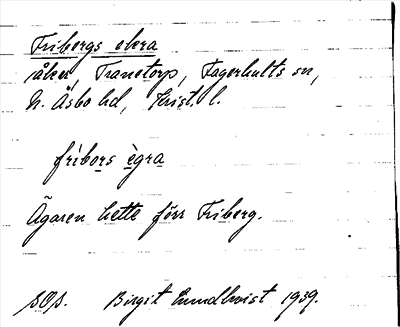 Fribergs ekra
åker, Tranetorp, Fagerhults sn,
N. Åsbo hd, Krist. l.
fribors ègra
Ägaren hette förr Friberg.
Birgit Lundkvist 1939.